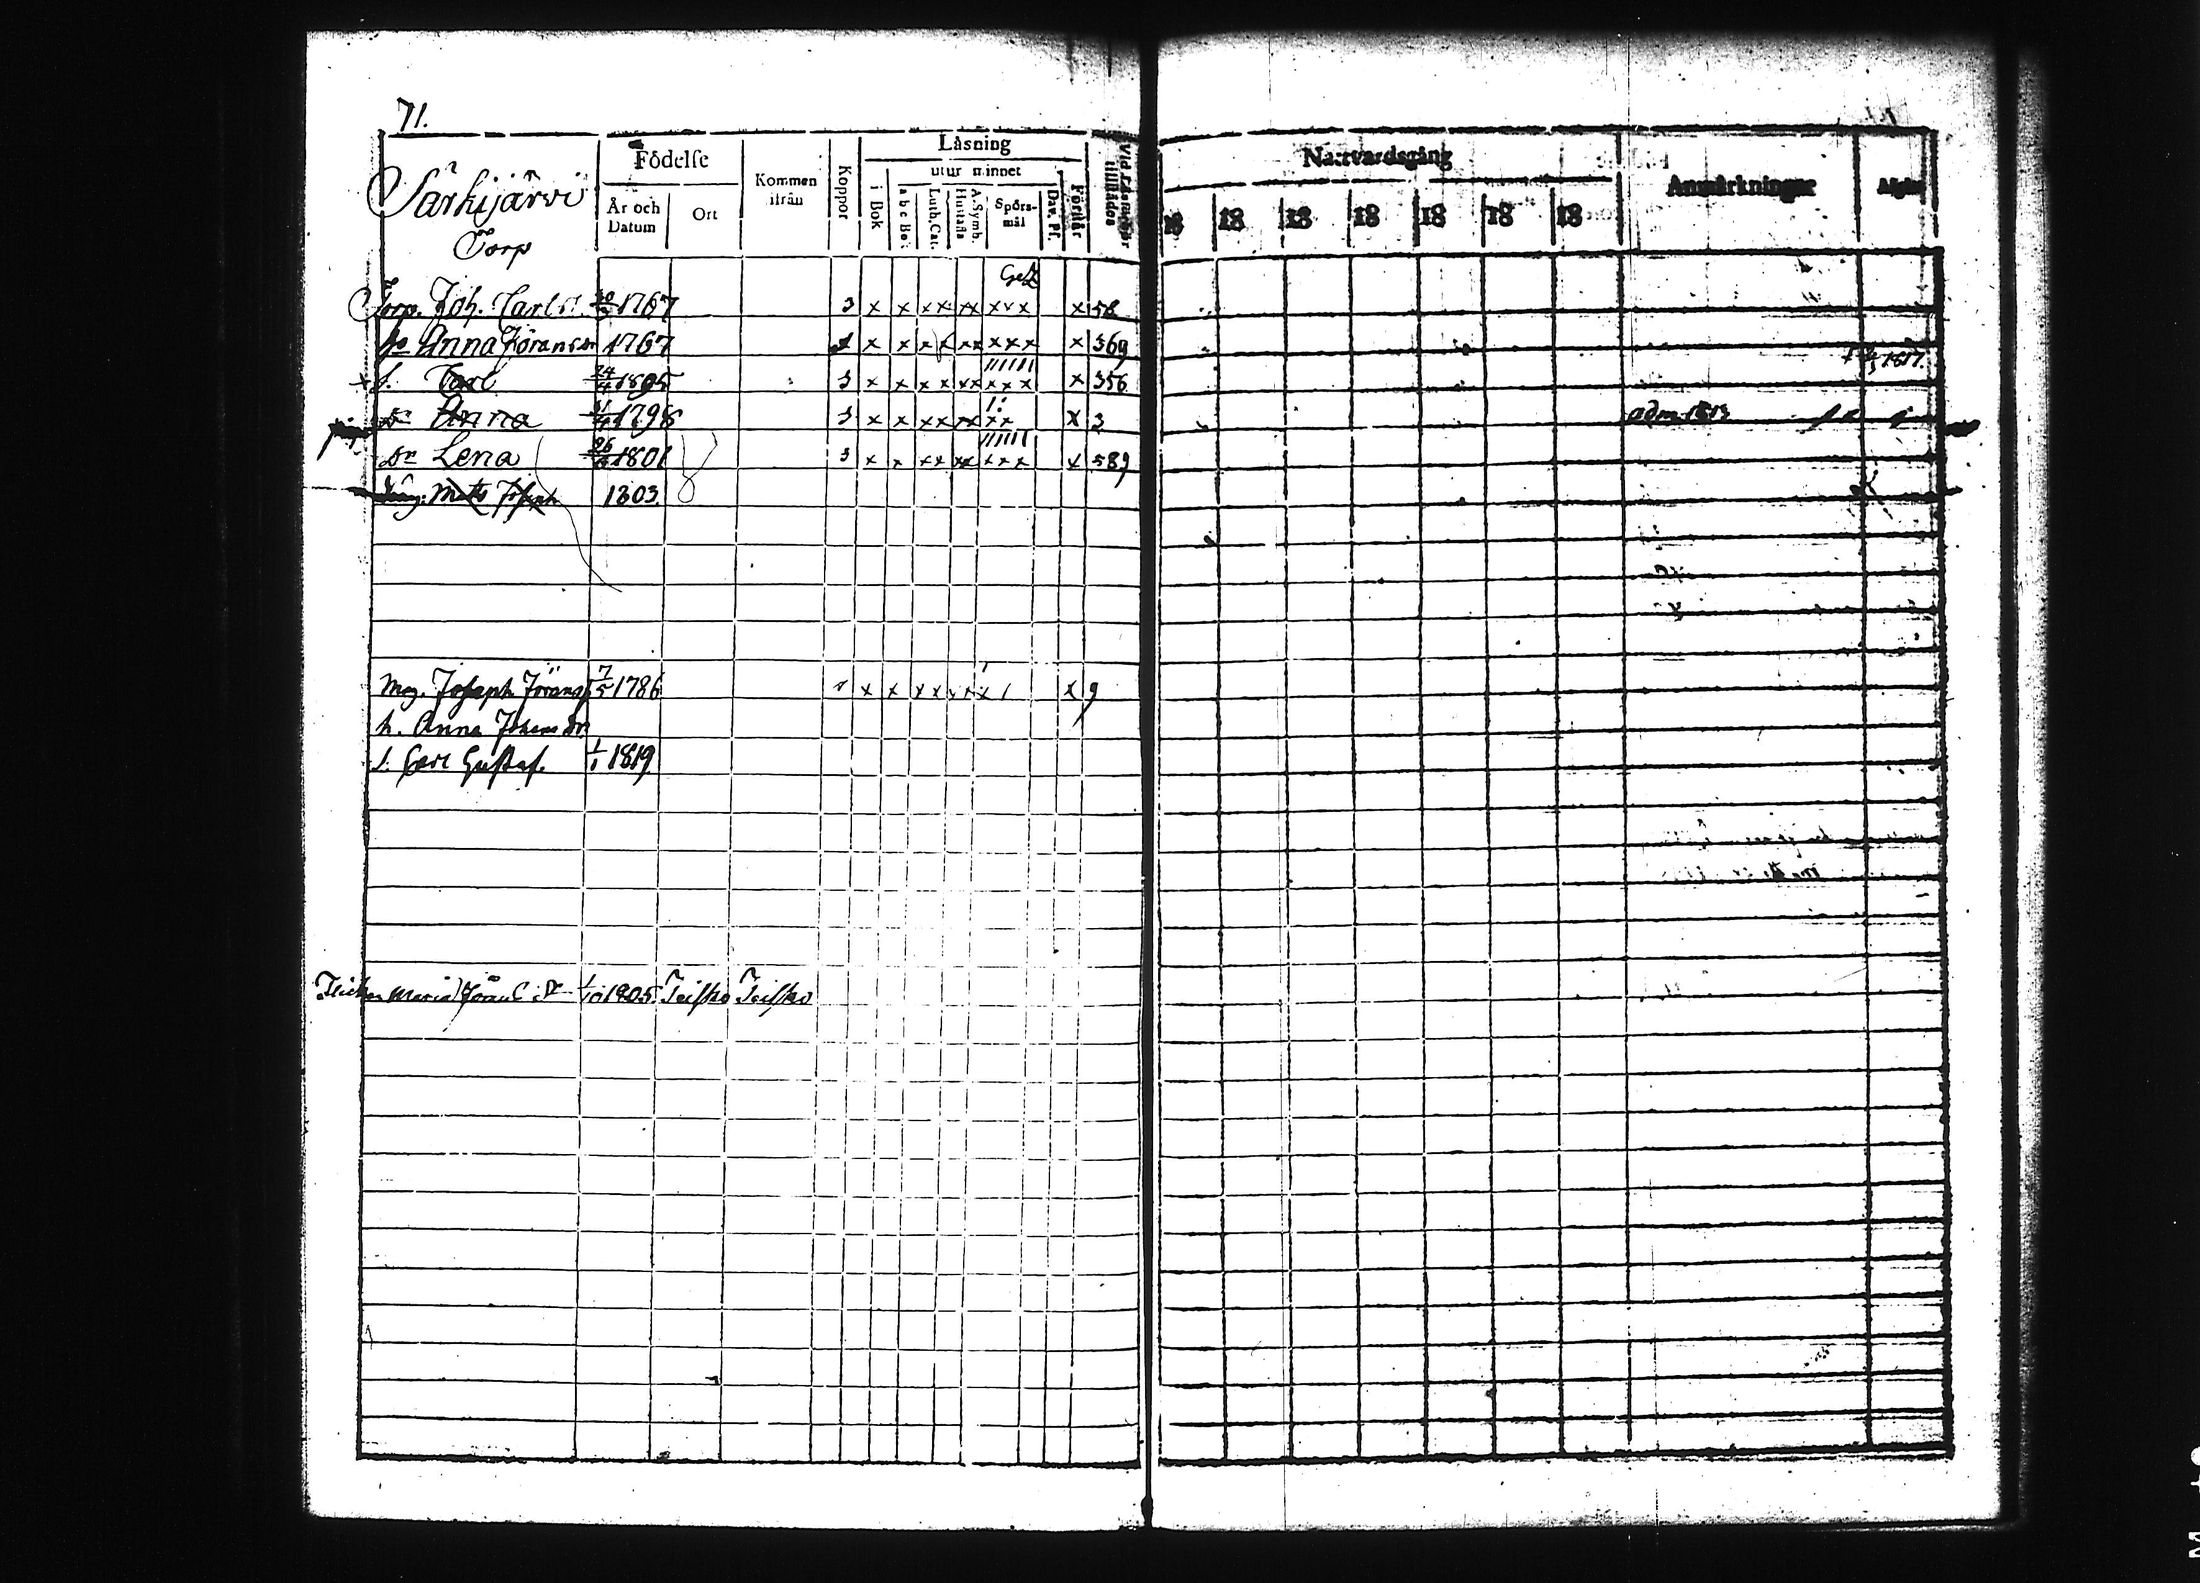 71.
Särkijärvi
Torp
Födelse
År och Datum
Ort
Kommen ifrån
Koppor
Läsning
i Bok
utur minnet
a b c Bok
Luth. Cat.
A. Symb. Hustafla
Spörsmål
Dav. Ps.
Förstår
Nattvardsgång
18 18 18 18 18 18 18
Anmärkningar
Torp. Joh. Carls. 1767 3 x x xx xx xxx x 58
Anna Jörans dr 1767 x x x x xx xxx x 369
s. Carl 24/4 1805 3 x x x x xx xxx x 356 1817.
Dr Anna 1798 3 x x xx xx xx x 3 adm. 1813
Dr Lena 26 1801 3 x x xx xx xxx x 589
Mats Joseph 1803.
Mog. Joseph Jörans 7/5 1786 x x xx x x x 9
h. Anna Johans dr.
s. Carl Gustaf. 1/1 1819
Maria 1805. Teisko Teisko